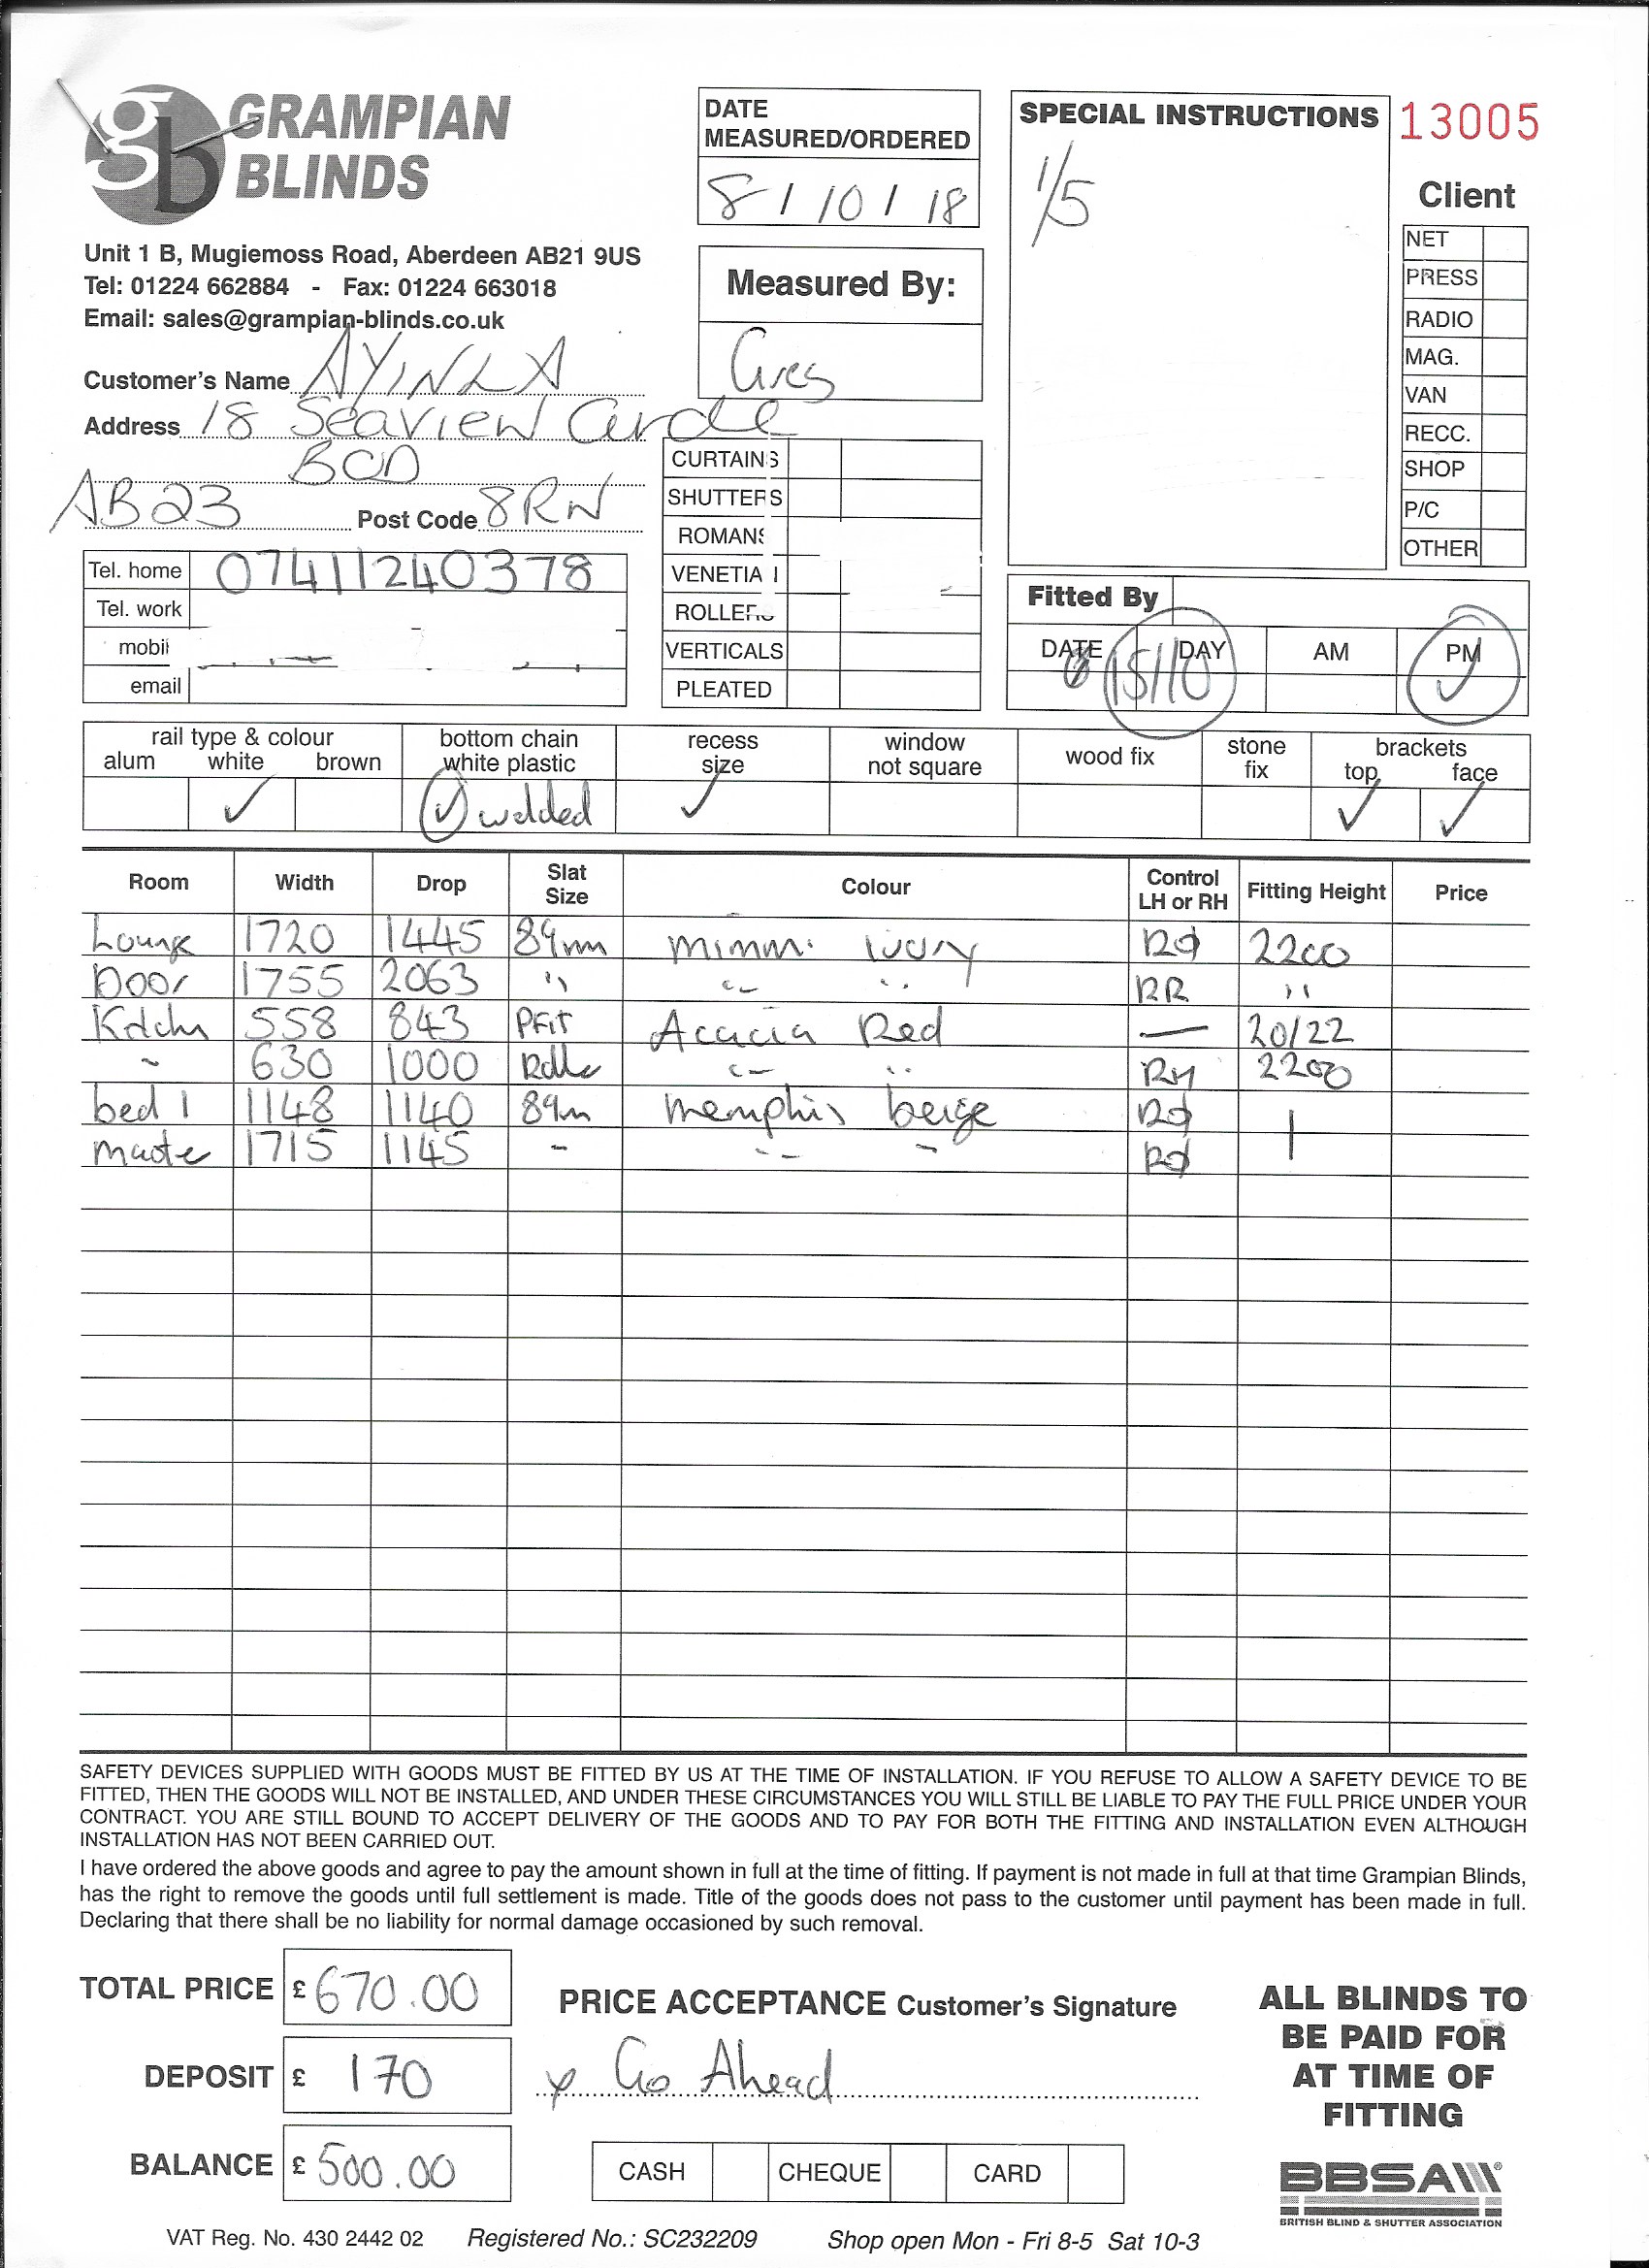 gb GRAMPIAN BLINDS
DATE MEASURED/ORDERED
8 / 10 / 18
SPECIAL INSTRUCTIONS
1/5
13005
Client
NET
PRESS
RADIO
MAG.
VAN
RECC.
SHOP
P/C
OTHER
Unit 1 B, Mugiemoss Road, Aberdeen AB21 9US
Tel: 01224 662884 - Fax: 01224 663018
Email: sales@grampian-blinds.co.uk
Measured By:
Greg
Customer's Name AYINLA
Address 18 Seaview Circle
BOD
AB23 Post Code 8RW
Tel. home 07411240378
Tel. work
mobil
email
CURTAINS
SHUTTERS
ROMANS
VENETIA
ROLLERS
VERTICALS
PLEATED
Fitted By
DATE DAY AM PM
15/10 ✓
rail type & colour
alum white brown
bottom chain
white plastic
recess
size
window
not square
wood fix
stone
fix
brackets
top face
✓ ✓ welded ✓ ✓ ✓
Room Width Drop Slat Size Colour Control LH or RH Fitting Height Price
Lounge 1720 1445 89mm mimmi ivory 2200
Door 1755 2063 " " " RR "
Kitchn 558 843 PFit Acacia Red — 20/22
~ 630 1000 Rolle " " RH 2200
bed 1 1148 1140 89m memphis beige
maste 1715 1145 - - - -
SAFETY DEVICES SUPPLIED WITH GOODS MUST BE FITTED BY US AT THE TIME OF INSTALLATION. IF YOU REFUSE TO ALLOW A SAFETY DEVICE TO BE
FITTED, THEN THE GOODS WILL NOT BE INSTALLED, AND UNDER THESE CIRCUMSTANCES YOU WILL STILL BE LIABLE TO PAY THE FULL PRICE UNDER YOUR
CONTRACT. YOU ARE STILL BOUND TO ACCEPT DELIVERY OF THE GOODS AND TO PAY FOR BOTH THE FITTING AND INSTALLATION EVEN ALTHOUGH
INSTALLATION HAS NOT BEEN CARRIED OUT.
I have ordered the above goods and agree to pay the amount shown in full at the time of fitting. If payment is not made in full at that time Grampian Blinds,
has the right to remove the goods until full settlement is made. Title of the goods does not pass to the customer until payment has been made in full.
Declaring that there shall be no liability for normal damage occasioned by such removal.
TOTAL PRICE £ 670.00
DEPOSIT £ 170
BALANCE £ 500.00
PRICE ACCEPTANCE Customer's Signature
x Go Ahead
CASH CHEQUE CARD
ALL BLINDS TO
BE PAID FOR
AT TIME OF
FITTING
BBSA
BRITISH BLIND & SHUTTER ASSOCIATION
VAT Reg. No. 430 2442 02 Registered No.: SC232209 Shop open Mon - Fri 8-5 Sat 10-3